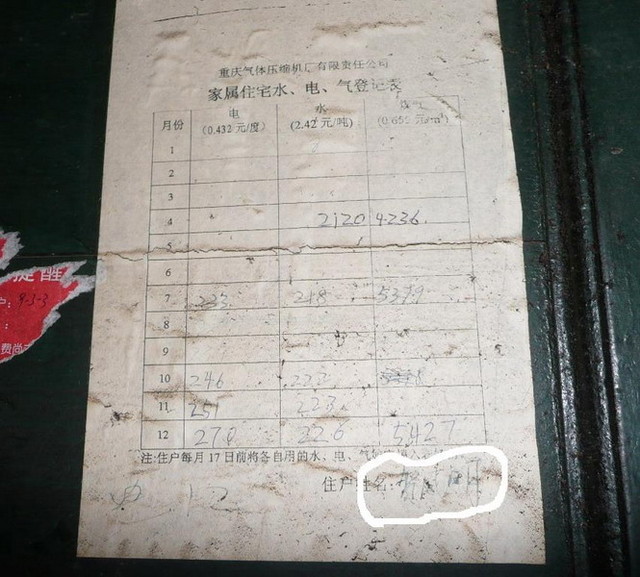 重庆气体压缩机厂有限责任公司
家属住宅水、电、气登记表
月份 电 (0.432 元/度) 水 (2.42 元/吨) (0.65 元/m³)
1
2
3
4 2120 4236.
5
6
7 233 218 5379
8
9
10 246 222
11 251 223
12 270 226 5427
注:住户每月 17 日前将各自用的水、电、气
住户姓名:
提醒
户: 9-3-3
费尚